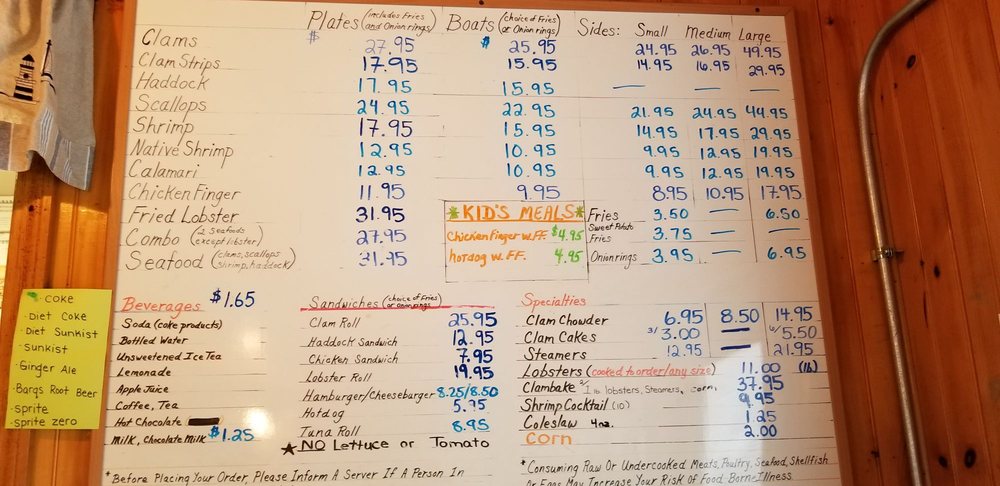 Plates (includes Fries and Onion rings) Boats (choice of Fries or Onion rings) Sides: Small Medium Large
Clams $ 27.95 $ 25.95 24.95 26.95 49.95
Clam Strips 17.95 15.95 14.95 16.95 29.95
Haddock 17.95 15.95 — —
Scallops 24.95 22.95 21.95 24.95 44.95
Shrimp 17.95 15.95 14.95 17.95 29.95
Native Shrimp 12.95 10.95 9.95 12.95 19.95
Calamari 12.95 10.95 9.95 12.95 19.95
Chicken Finger 11.95 9.95 8.95 10.95 17.95
Fried Lobster 31.95
Combo (2 seafoods except lobster) 27.95
Seafood (clams, scallops shrimp, haddock) 31.95
*KID'S MEALS*
Chicken Finger w. FF. $4.95
hotdog w. FF. 4.95
Fries 3.50 — 6.50
Sweet Potato Fries 3.75 — —
Onion rings 3.95 — 6.95
· Coke
· Diet Coke
· Diet Sunkist
· Sunkist
· Ginger Ale
· Barqs Root Beer
· sprite
· sprite zero
Beverages $1.65
Soda (coke products)
Bottled Water
Unsweetened Ice Tea
Lemonade
Apple Juice
Coffee, Tea
Hot Chocolate
Milk, Chocolate Milk $1.25
Sandwiches (choice of Fries or Onion rings)
Clam Roll 25.95
Haddock Sandwich 12.95
Chicken Sandwich 7.95
Lobster Roll 19.95
Hamburger/Cheeseburger 8.25/8.50
Hotdog 5.95
Tuna Roll 8.95
★ NO Lettuce or Tomato
Specialties
Clam Chowder 6.95 8.50 14.95
Clam Cakes 3/ 3.00 — 6/5.50
Steamers 12.95 — 21.95
Lobsters (cooked to order/any size) 11.00 (lb)
Clambake 2/1 lb lobsters, Steamers, corn, 37.95
Shrimp Cocktail (10) 9.95
Coleslaw 4oz. 1.25
Corn 2.00
* Before Placing Your Order, Please Inform A Server If A Person In
* Consuming Raw Or Undercooked Meats, Poultry, Seafood, Shellfish
Or Eggs May Increase Your Risk Of Food Borne Illness